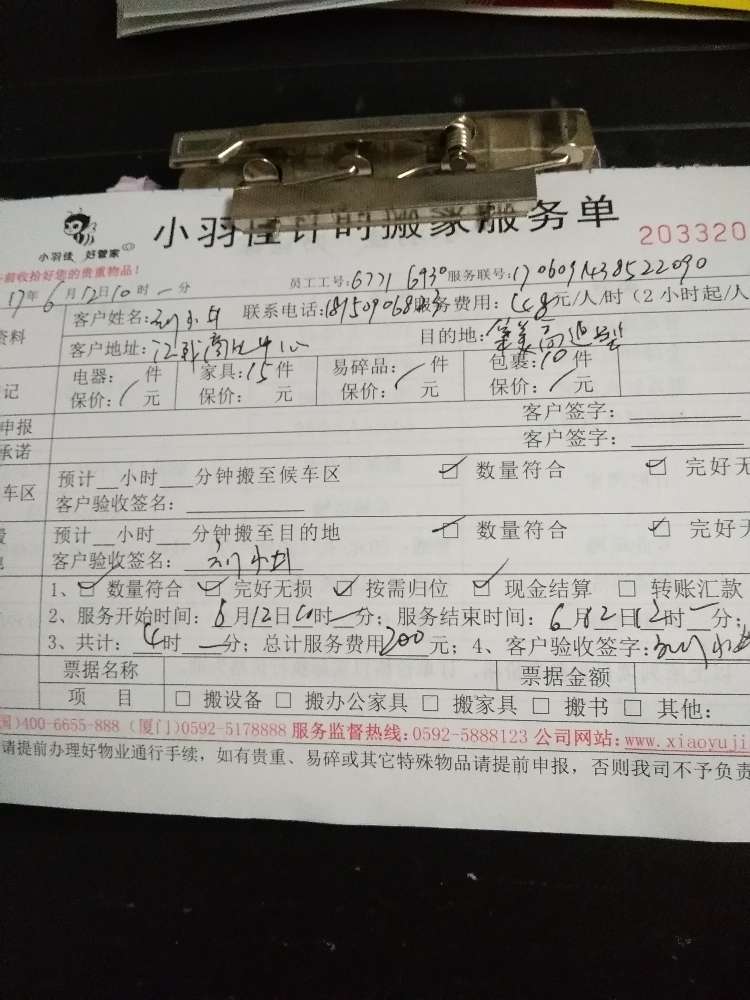 小羽佳计时搬家服务单
203320
小羽佳 好管家
前收拾好您的贵重物品!
17年6月12日10时一分 员工工号:6771 6930 服务联号:170609143852209 0
资料 客户姓名: 联系电话: 服务费用: 元/人/时(2小时起/人
客户地址: 中心 目的地:
记 电器: 件 家具:15件 易碎品: 件 包裹:10件
保价: 元 保价: 元 保价: 元 保价: 元
申报 客户签字:
承诺 客户签字:
车区 预计 小时 分钟搬至候车区 ☑ 数量符合 ☑ 完好无
客户验收签名:
预计 小时 分钟搬至目的地 ☑ 数量符合 ☑ 完好无
客户验收签名:
1、☑ 数量符合 ☑ 完好无损 ☑ 按需归位 ☑ 现金结算 □ 转账汇款
2、服务开始时间:6月12日10时一分;服务结束时间:6月12日12时一分;
3、共计:4时一分;总计服务费用200元;4、客户验收签字:
票据名称 票据金额
项 目 □ 搬设备 □ 搬办公家具 □ 搬家具 □ 搬书 □ 其他:
国)400-6655-888 (厦门)0592-5178888 服务监督热线:0592-5888123 公司网站:www.xiaoyuji
请提前办理好物业通行手续,如有贵重、易碎或其它特殊物品请提前申报,否则我司不予负责